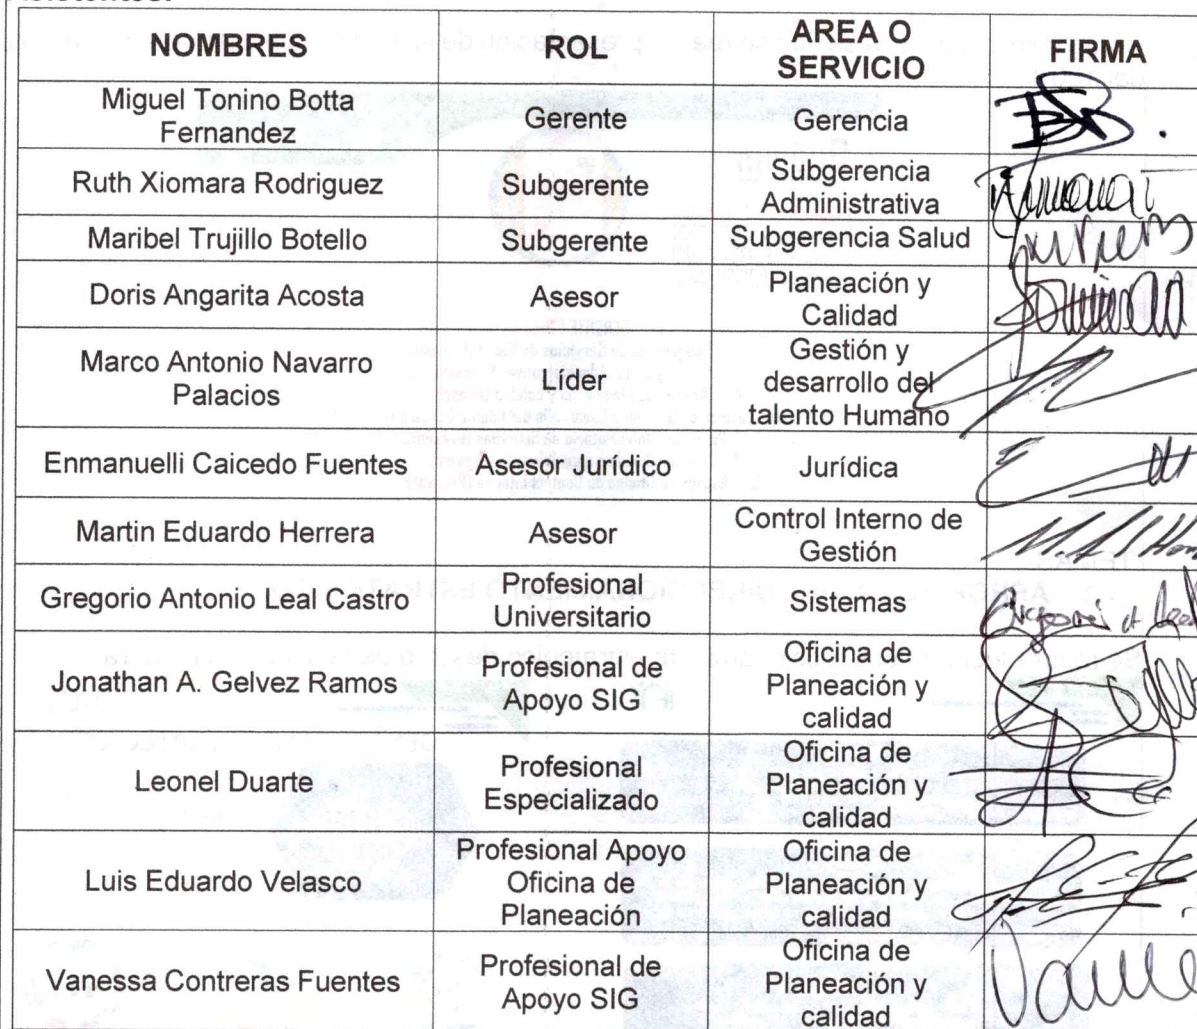 Asistentes:
NOMBRES ROL AREA O SERVICIO FIRMA
Miguel Tonino Botta Fernandez Gerente Gerencia
Ruth Xiomara Rodriguez Subgerente Subgerencia Administrativa
Maribel Trujillo Botello Subgerente Subgerencia Salud
Doris Angarita Acosta Asesor Planeación y Calidad
Marco Antonio Navarro Palacios Líder Gestión y desarrollo del talento Humano
Enmanuelli Caicedo Fuentes Asesor Jurídico Jurídica
Martin Eduardo Herrera Asesor Control Interno de Gestión
Gregorio Antonio Leal Castro Profesional Universitario Sistemas
Jonathan A. Gelvez Ramos Profesional de Apoyo SIG Oficina de Planeación y calidad
Leonel Duarte Profesional Especializado Oficina de Planeación y calidad
Luis Eduardo Velasco Profesional Apoyo Oficina de Planeación Oficina de Planeación y calidad
Vanessa Contreras Fuentes Profesional de Apoyo SIG Oficina de Planeación y calidad